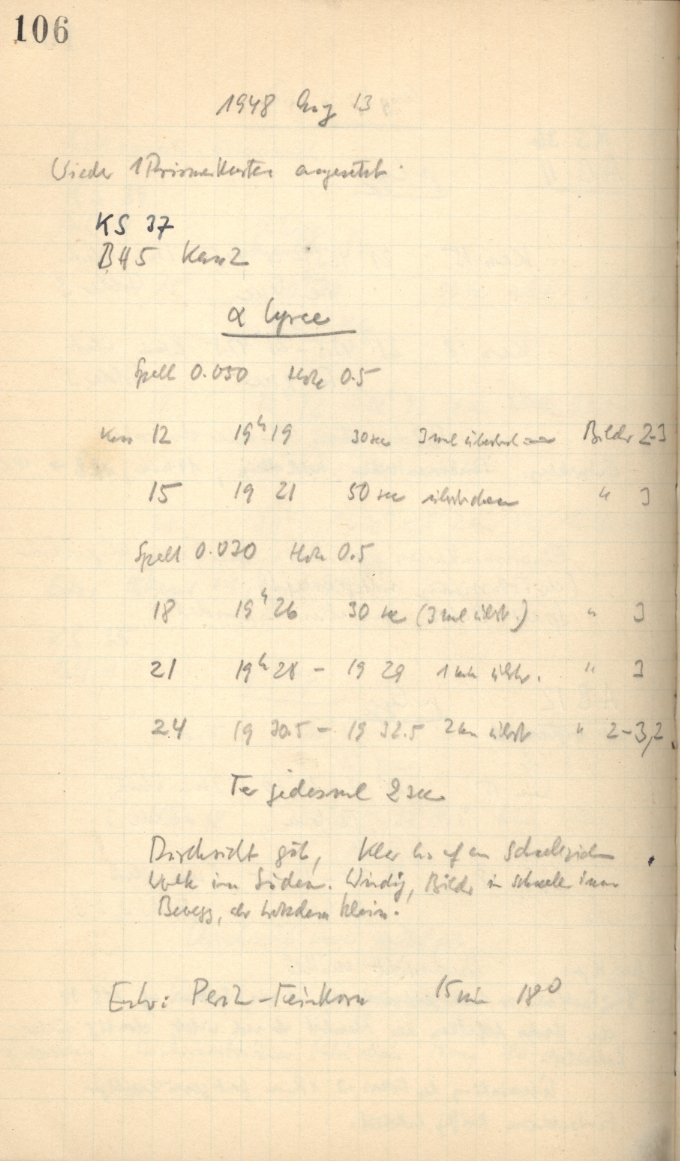 106
1948 Aug 13
Wieder 1 Prismenkasten angesetzt.
KS 37
BH5 Kass 2
α Lyrae
Spalt 0.030 Höhe 0.5
Kass 12 19ʰ19 30 sec 3 mal überstrichen Bilder 2-3
15 19 21 50 sec überstrichen " 3
Spalt 0.020 Höhe 0.5
18 19ʰ26 30 sec (3 mal übstr.) " 3
21 19ʰ28 - 19 29 1 min übstr. " 3
24 19 30.5 - 19 32.5 2 min übstr " 2-3,2
jedesmal 2 sec
Durchsicht gut, klar bis auf
Wolke im Süden. Windig, Bilder in schneller
Bewegg, aber trotzdem klein.
Entw: Feinkorn 15 min 18⁰